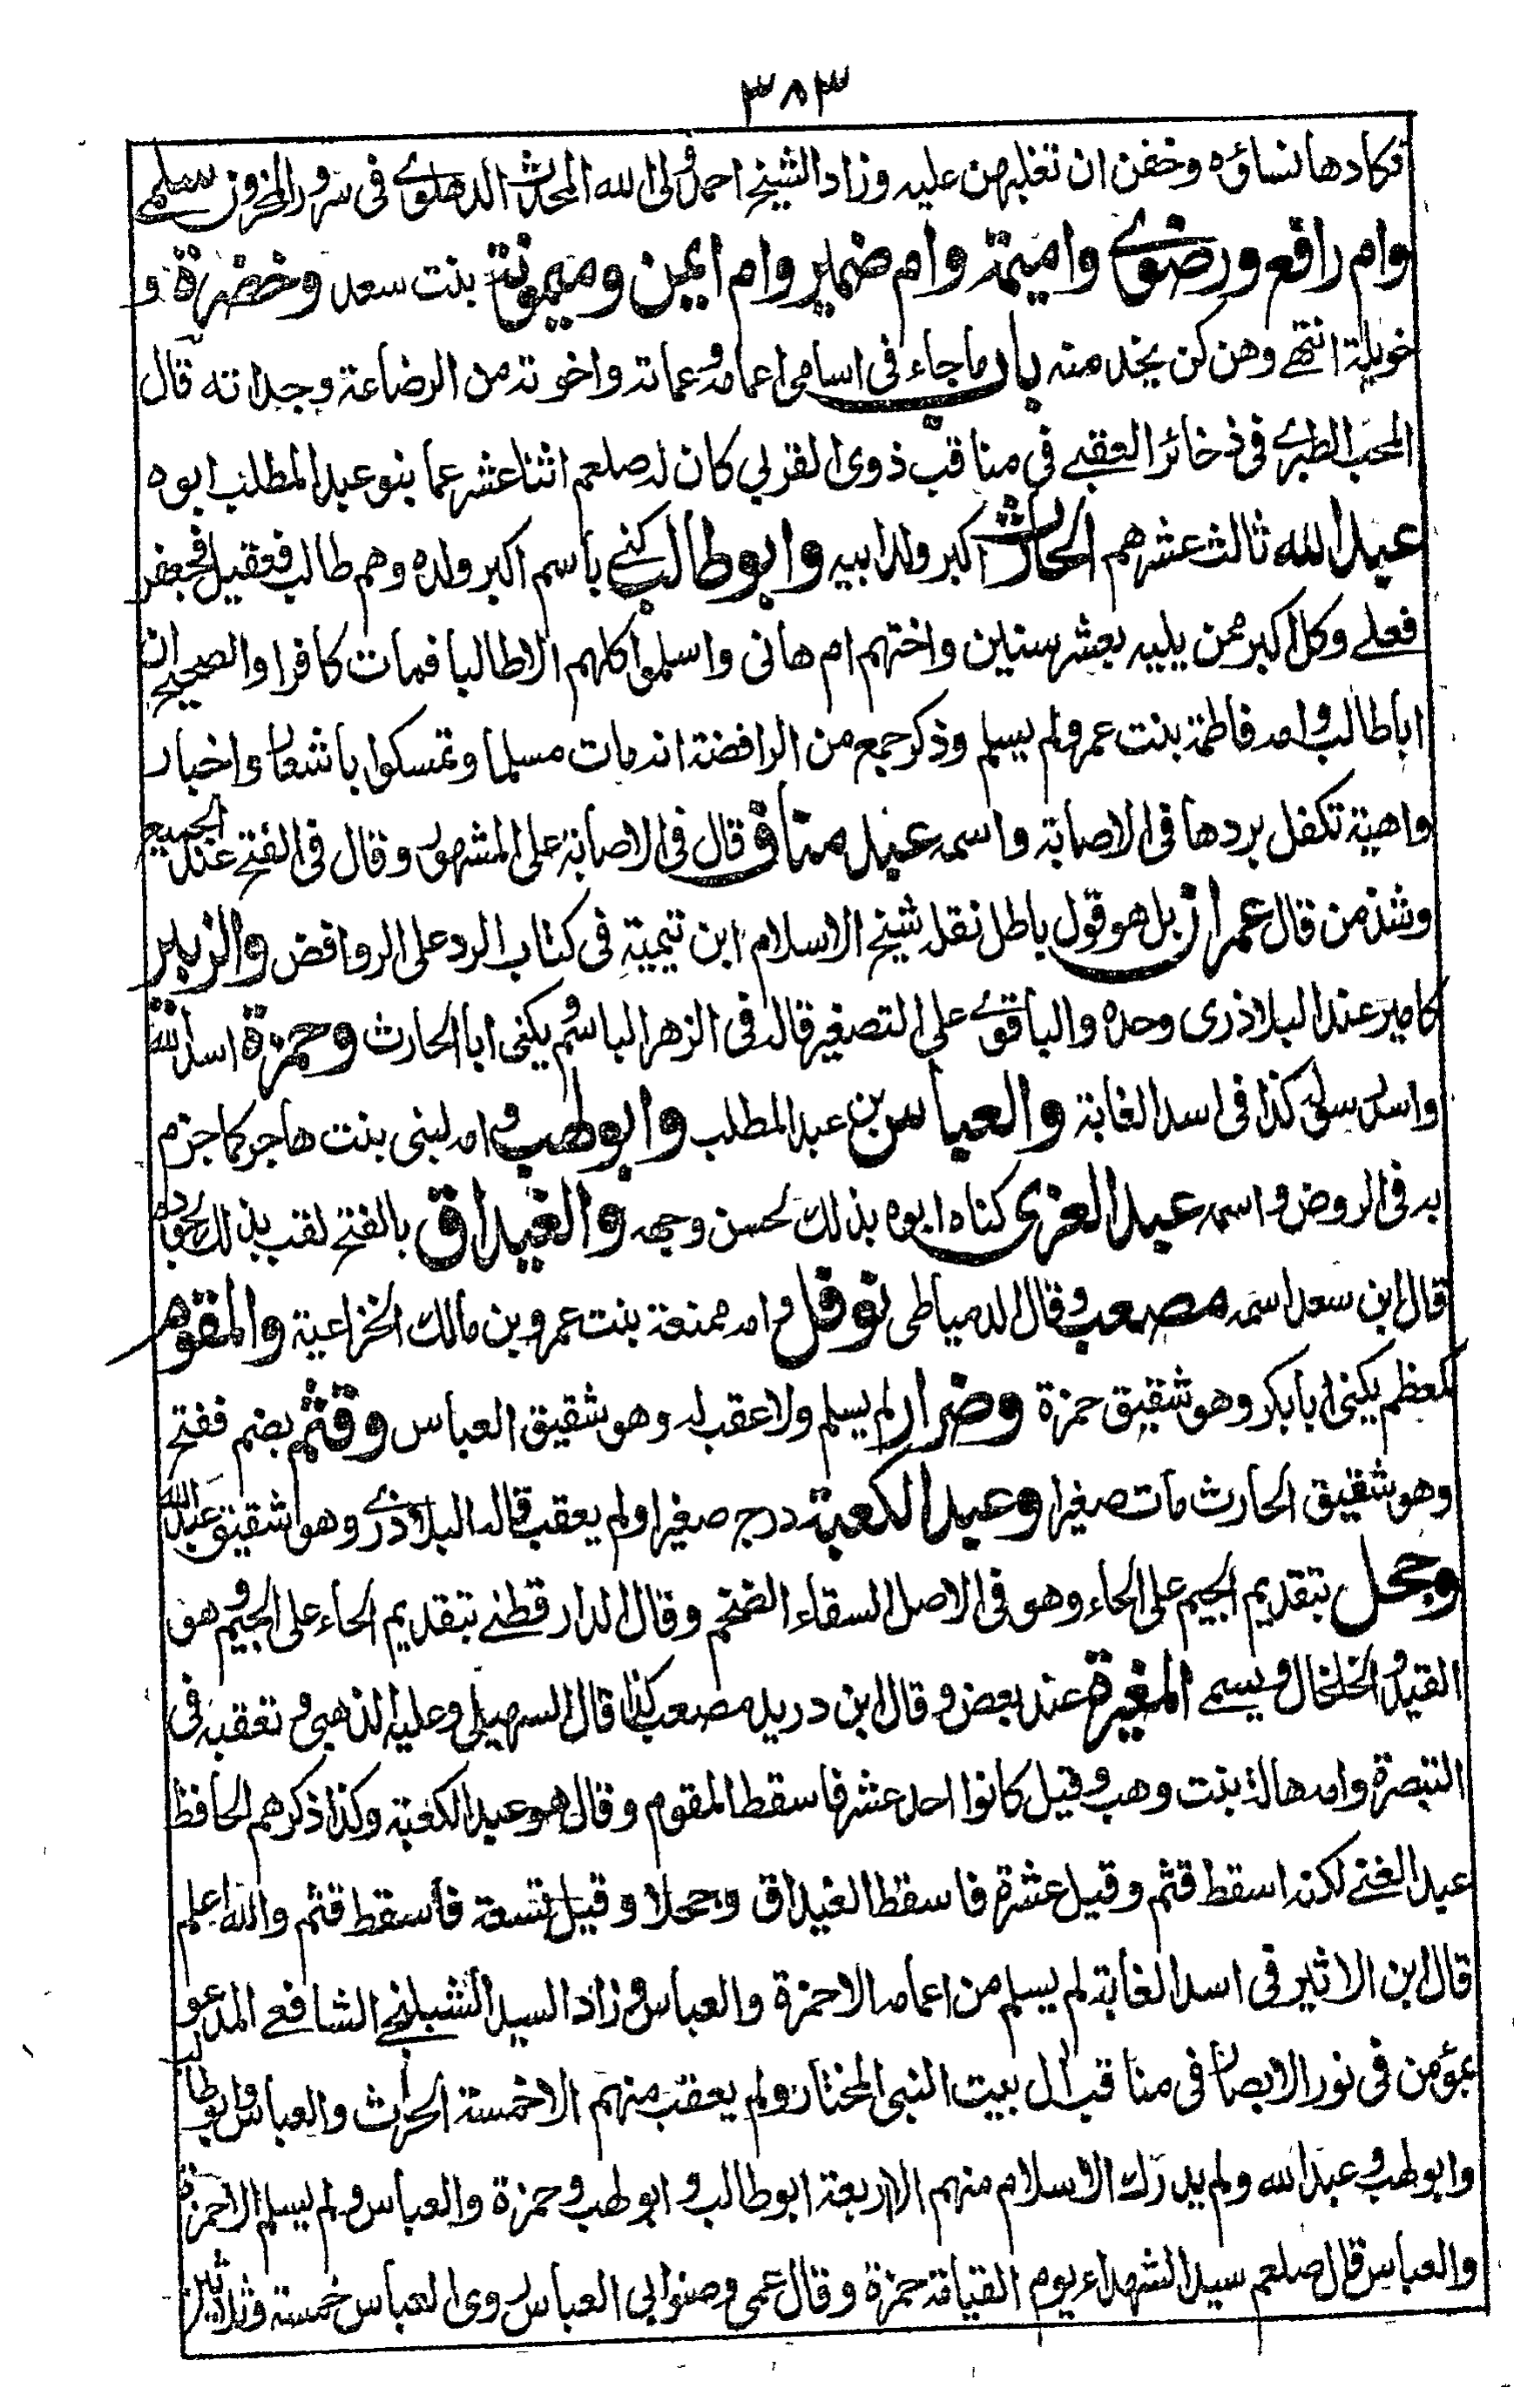 ٣٨٣
فكادها نساؤه وخفن ان تغلبهن عليه وزاد الشيخ احمد ولى الله المحدث الدهلوي فى سرور المحزون سلمى
وام رافع ورضوى واميمة وام ضمير وام ايمن وميمونة بنت سعد وخضرة و
خويلة انتهى وهن كن يخدمنه باب ما جاء فى اسامى اعمامه وعماته واخوته من الرضاعة وجداته قال
المحب الطبرى فى ذخائر العقبى فى مناقب ذوى القربى كان له صلعم اثنا عشر عما بنو عبد المطلب ابوه
عبد الله ثالث عشرهم الحارث اكبر ولد ابيه وابو طالب كنى باسم اكبر ولده وهم طالب فعقيل فجعفر
فعلى وكل اكبر ممن يليه بعشر سنين واختهم ام هانى واسلموا كلهم الا طالبا فمات كافرا والصحيح ان
ابا طالب وامه فاطمة بنت عمرو لم يسلم وذكر جمع من الرافضة انه مات مسلما وتمسكوا باشعار واخبار
واهية تكفل بردها فى الاصابة واسمه عبد مناف قال فى الاصابة على المشهور وقال فى الفتح عند الجميع
وشذ من قال عمران بل هو قول باطل نقله شيخ الاسلام ابن تيمية فى كتاب الرد على الروافض والزبير
كامير عند البلاذرى وحده والباقون على التصغير قاله فى الزهر الباسم ويكنى ابا الحارث وحمزة اسد الله
واسد رسوله كذا فى اسد الغابة والعباس بن عبد المطلب وابو لهب وامه لبنى بنت هاجر كما جزم
به فى الروض واسمه عبد العزى كناه ابوه بذلك لحسن وجهه والغيداق بالفتح لقب بذلك لجوده
قال ابن سعد اسمه مصعب وقال الدمياطى نوفل وامه ممنعة بنت عمرو بن مالك الخزاعية والمقوم
كمعظم يكنى ابا بكر وهو شقيق حمزة وضرار لم يسلم ولا عقب له وهو شقيق العباس وقثم بضم ففتح
وهو شقيق الحارث مات صغيرا وعبد الكعبة درج صغيرا ولم يعقب قاله البلاذرى وهو شقيق عبد الله
وجحل بتقديم الجيم على الحاء وهو فى الاصل السقاء الضخم وقال الدارقطنى بتقديم الحاء على الجيم وهو
القيد والخلخال ويسمى المغيرة عند بعض وقال ابن دريد مصعب كذا قال السهيلى وعليه الذهبى وتعقبه فى
التبصرة وامه هالة بنت وهب وقيل كانوا احد عشر فاسقط المقوم وقال هو عبد الكعبة وكذا ذكرهم الحافظ
عبد الغنى لكنه اسقط قثم وقيل عشرة فاسقط الغيداق وجحلا وقيل تسعة فأسقط قثم والله اعلم
قال ابن الاثير فى اسد الغابة لم يسلم من اعمامه الا حمزة والعباس وزاد السيد الشبلنجى الشافعى المدعو
بمؤمن فى نور الابصار فى مناقب ال بيت النبى المختار ولم يعقب منهم الا خمسة الحارث والعباس وابو طالب
وابو لهب وعبد الله ولم يدرك الاسلام منهم الا اربعة ابو طالب وابو لهب وحمزة والعباس ولم يسلم الا حمزة
والعباس قال صلعم سيد الشهداء يوم القيامة حمزة وقال عمى وصنو ابى العباس روى العباس خمسة وثلاثين